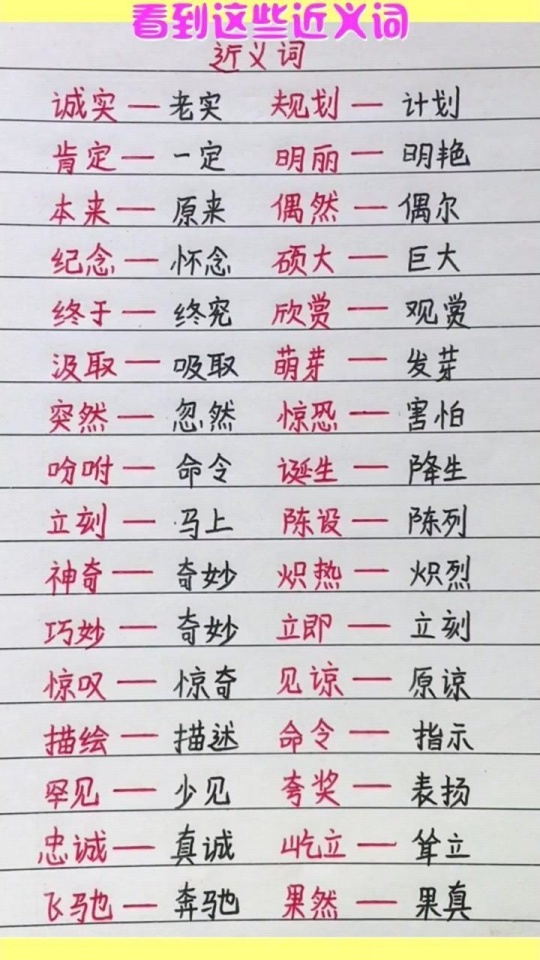 看到这些近义词
近义词
诚实—老实 规划—计划
肯定—一定 明丽—明艳
本来—原来 偶然—偶尔
纪念—怀念 硕大—巨大
终于—终究 欣赏—观赏
汲取—吸取 萌芽—发芽
突然—忽然 惊恐—害怕
吩咐—命令 诞生—降生
立刻—马上 陈设—陈列
神奇—奇妙 炽热—炽烈
巧妙—奇妙 立即—立刻
惊叹—惊奇 见谅—原谅
描绘—描述 命令—指示
罕见—少见 夸奖—表扬
忠诚—真诚 屹立—耸立
飞驰—奔驰 果然—果真